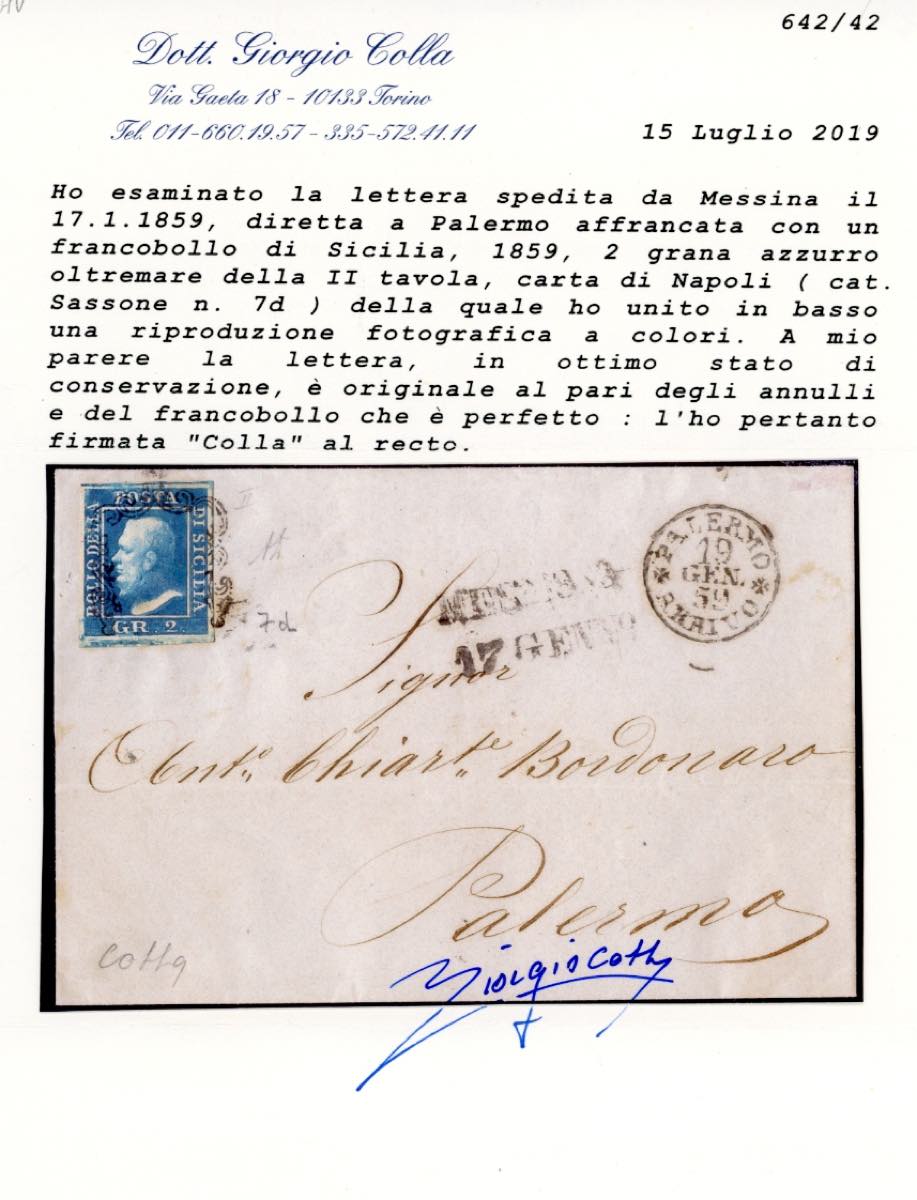 642/42
Dott. Giorgio Colla
Via Gaeta 18 - 10133 Torino
Tel. 011-660.19.57 - 335-572.41.11
15 Luglio 2019
Ho esaminato la lettera spedita da Messina il
17.1.1859, diretta a Palermo affrancata con un
francobollo di Sicilia, 1859, 2 grana azzurro
oltremare della II tavola, carta di Napoli ( cat.
Sassone n. 7d ) della quale ho unito in basso
una riproduzione fotografica a colori. A mio
parere la lettera, in ottimo stato di
conservazione, è originale al pari degli annulli
e del francobollo che è perfetto : l'ho pertanto
firmata "Colla" al recto.
BOLLO DELLA
POSTA
DI SICILIA
GR. 2.
II
7d
MESSINA
17 GENN
PALERMO
19
GEN.
59
ARRIVO
Signor
Ant.º Chiar.te Bordonaro
Palermo
Colla
Giorgio Colla